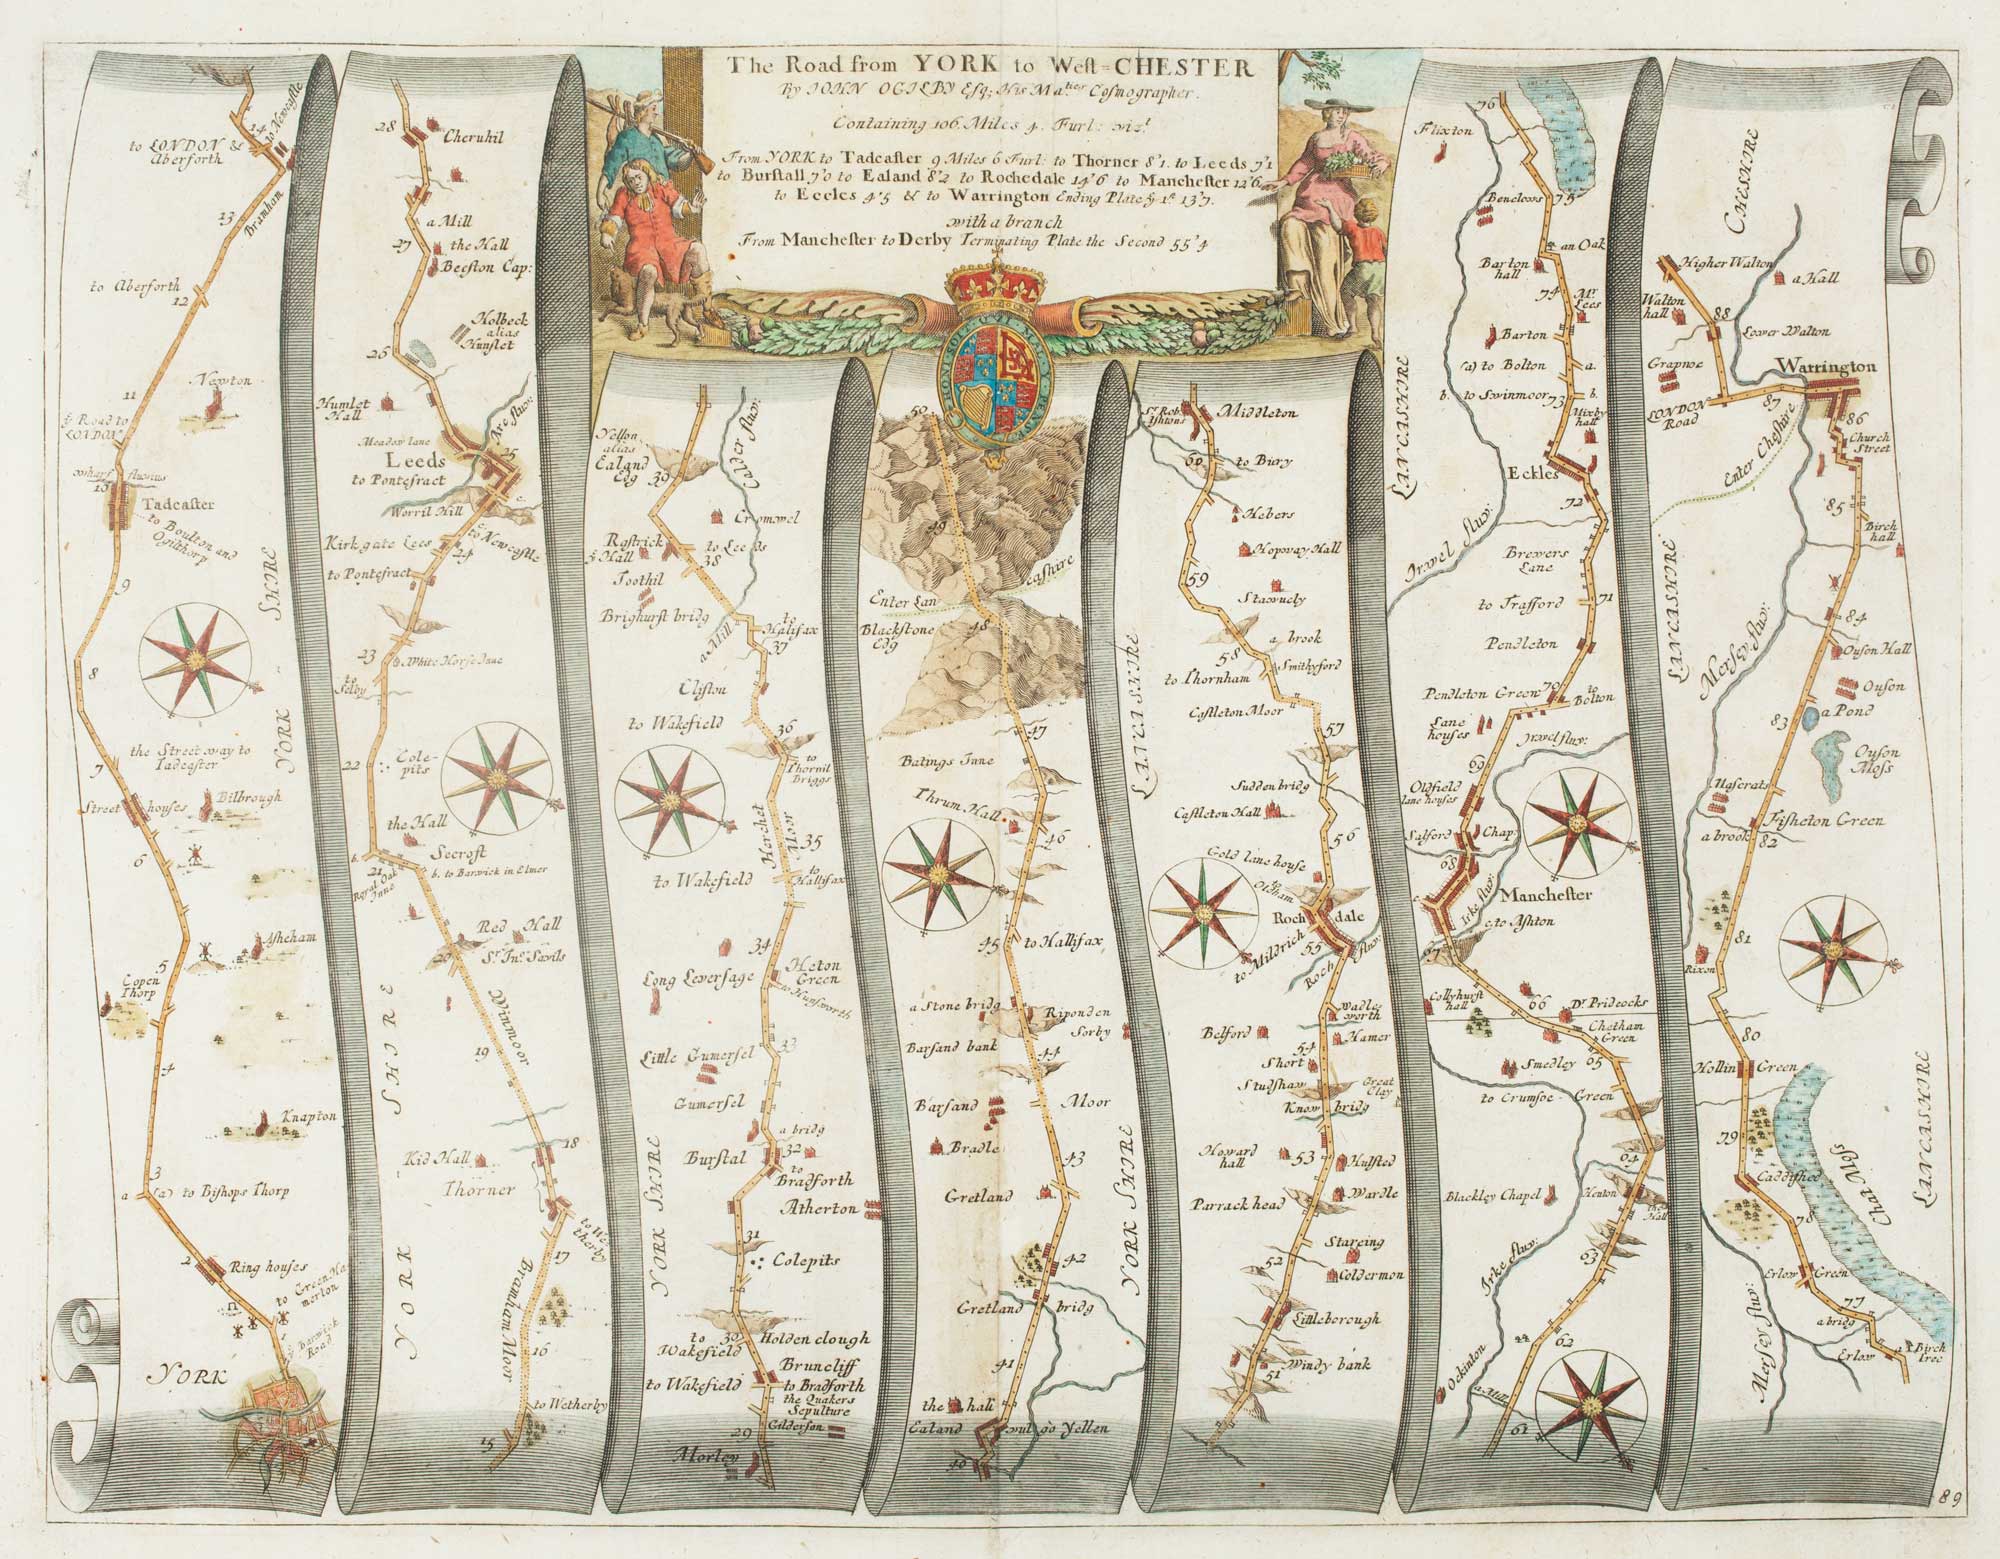 The Road from YORK to West=CHESTER
By IOHN OGILBY Esq; His Maties Cosmographer.
Containing 106 Miles 4. Furl: vizt
From YORK to Tadcaster 9 Miles 6 Furl: to Thorner 8'1. to Leeds 7'1
to Burstall 7'0 to Ealand 8'2 to Rochedale 14'6 to Manchester 12'6
to Eccles 4'5 & to Warrington Ending Plate ye 1st 13'7.
with a branch
From Manchester to Derby Terminating Plate the Second 55'4
HONI SOIT QUI MAL Y PENSE
to LONDON &
Aberforth
14
to Newcastle
13
Bramham
to Aberforth
12
11
ye Road to
LONDON
Wharf fluvius
10
Tadcaster
to Boulton and
Ogilthorp
9
YORK SHIRE
8
the Street way to
Tadcaster
7
Street houses
Bilbrough
6
Newton
Askham
5
Copen
Thorp
4
Knapton
3
a (a) to Bishops Thorp
2
Ring houses
to Green Ha
merton
to Barwick
Road
YORK
28
Cheruhil
a Mill
27
the Hall
Beeston Cap:
Holbeck
alias
Hunslet
26
Humlet
Hall
Meadow lane
Are fluv:
Leeds
25
to Pontefract
Worril Hill
c.
Kirkgate Lees
24
c. to Newcastle
to Pontefract
23
White Horse Inne
to
Selby
22
Cole-
pits
the Hall
Secroft
b.
21
b. to Barwick in Elmer
Royal Oak
Inne
Red Hall
Sr Ino Savils
20
Winmoor
19
YORK SHIRE
18
Kid Hall
Thorner
to We
therby
17
Bramham Moor
16
to Wetherby
15
Yellon
alias
Ealand
Edg
39
Calder fluv:
Cromwel
Rastrick
ye Hall
to Leeds
38
Toothil
Brighurst bridg
a Mill
to
Halifax
37
Clifton
to Wakefield
36
to
Thornil
Briggs
Herchet Moor
35
to Wakefield
to
Hallifax
34
Heton
Green
Long Leversage
to Hunsworth
33
Little Gumersel
Gumersel
a bridg
Burstal
32
to
Bradforth
Atherton
YORK SHIRE
31
Colepits
to
Wakefield
30
Holden clough
Bruncliff
to Wakefield
to Bradforth
the Quakers
Sepulture
29
Gilderson
Morley
50
49
Enter Lancashire
48
Blackstone
Edg
47
Batings Inne
Thrum Hall
46
45
to Hallifax
a Stone bridg
Riponden
Sorby
Barsand bank
44
Barsand
Moor
Bradle
43
Gretland
YORK SHIRE
42
Gretland bridg
41
the hall
Ealand
vulgo Yellen
40
Sr Rob.
Ashtons
Middleton
60
to Bury
Hebers
Hopway Hall
59
Stawuely
a brook
58
Smithyford
to Thornham
Castleton Moor
57
LANCASHIRE
Sudden bridg
Castleton Hall
56
Gold lane house
to
Oldham
Roch dale
55
to Mildrich
Roch fluv:
Wadle
worth
Belford
Hamer
54
Short
Studshaw
Great
Clay
Know bridg
Howard
hall
53
Hulsted
Wardle
Parrack head
Stareing
52
Coldermon
Littleborough
Windy bank
51
76
Flixton
Benclows
75
an Oak
Barton
hall
74
Mr
Lees
Barton
(a) to Bolton
a.
b. to Swinmoor
73
b.
Mixby
hall
LANCASHIRE
Eckles
72
Irwel fluv:
Brewers
Lane
to Trafford
71
Pendleton
Pendleton Green
70
to
Bolton
Lane
houses
Irwel fluv:
69
Oldfield
lane houses
Salford
Chap:
68
Manchester
Irke fluv:
c
c to Ashton
67
Collyhurst
hall
66
Dr Prideocks
Chetham
Green
65
Smedley
to Crumsoe-Green
64
Blackley Chapel
Heaton
the
Hall
63
Irke fluv:
62
Ockinton
a Mill
61
CHESHIRE
Higher Walton
a Hall
Walton
hall
88
Lower Walton
Grapnoe
Warrington
LONDON
Road
87
86
Enter Cheshire
Church
Street
85
Birch
hall
LANCASHIRE
84
Mersey fluv:
Ouson Hall
Ouson
a Pond
83
Ouson
Moss
Mascrats
a brook
Fisheton Green
82
81
Rixon
80
Hollin Green
79
Caddishee
Chat Moss
78
LANCASHIRE
Erlow Green
77
a bridg
Mersey fluv:
Erlow
a Birch
tree
89